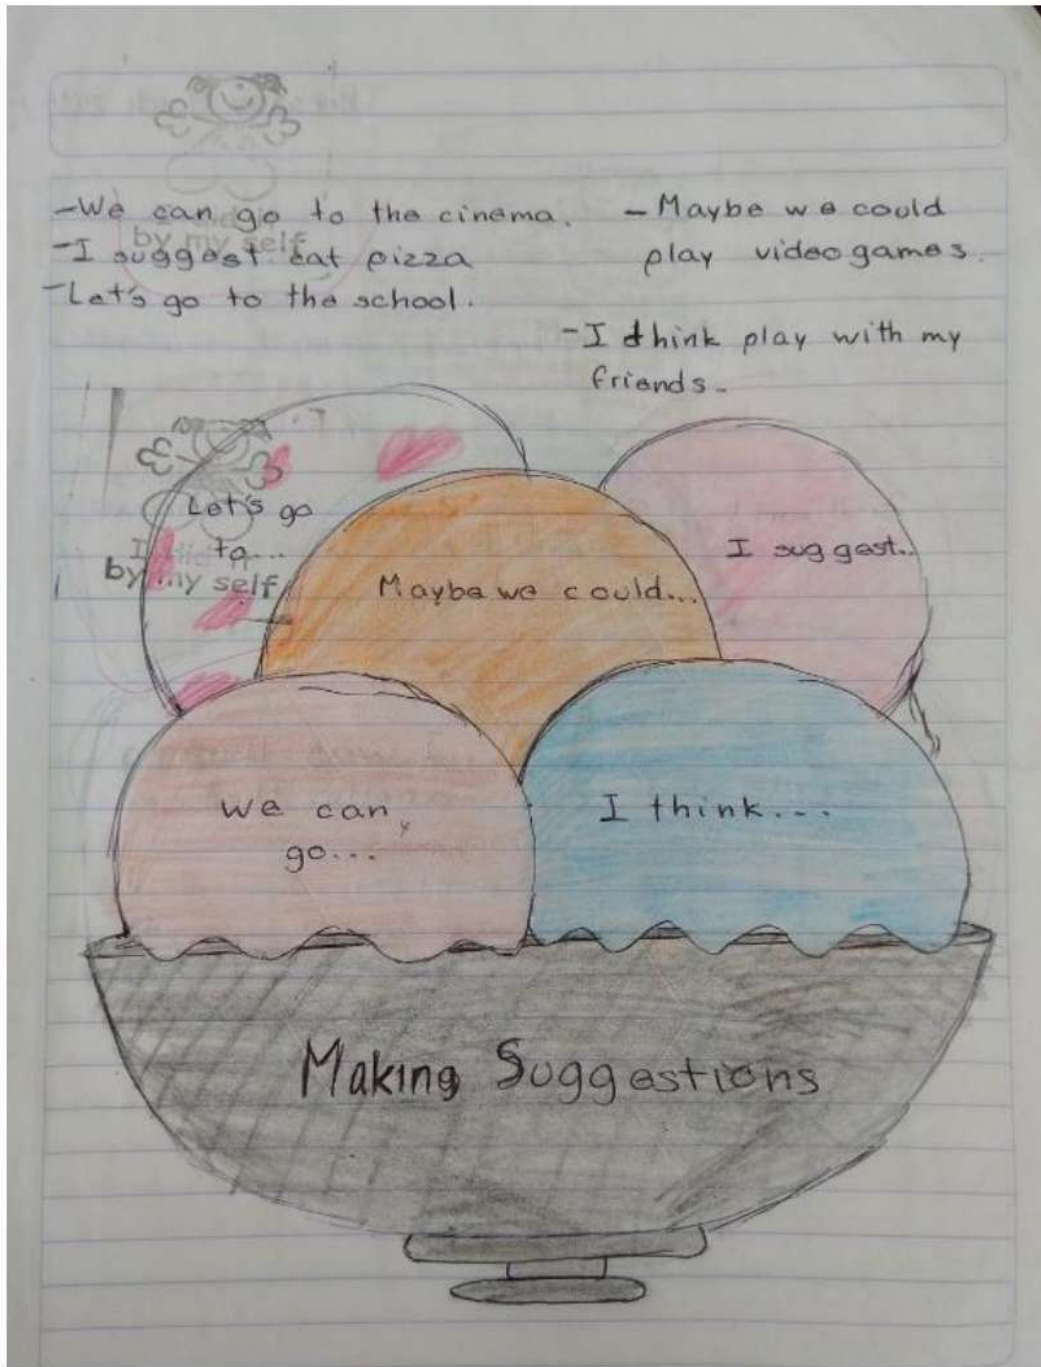 -We can go to the cinema.
-I suggest eat pizza
-Let's go to the school.
-Maybe we could
play videogames.
-I think play with my
friends.
by my self
Let's go
to....
I did it
by my self
Maybe we could...
I suggest..
We can
go...
I think....
Making Suggestions